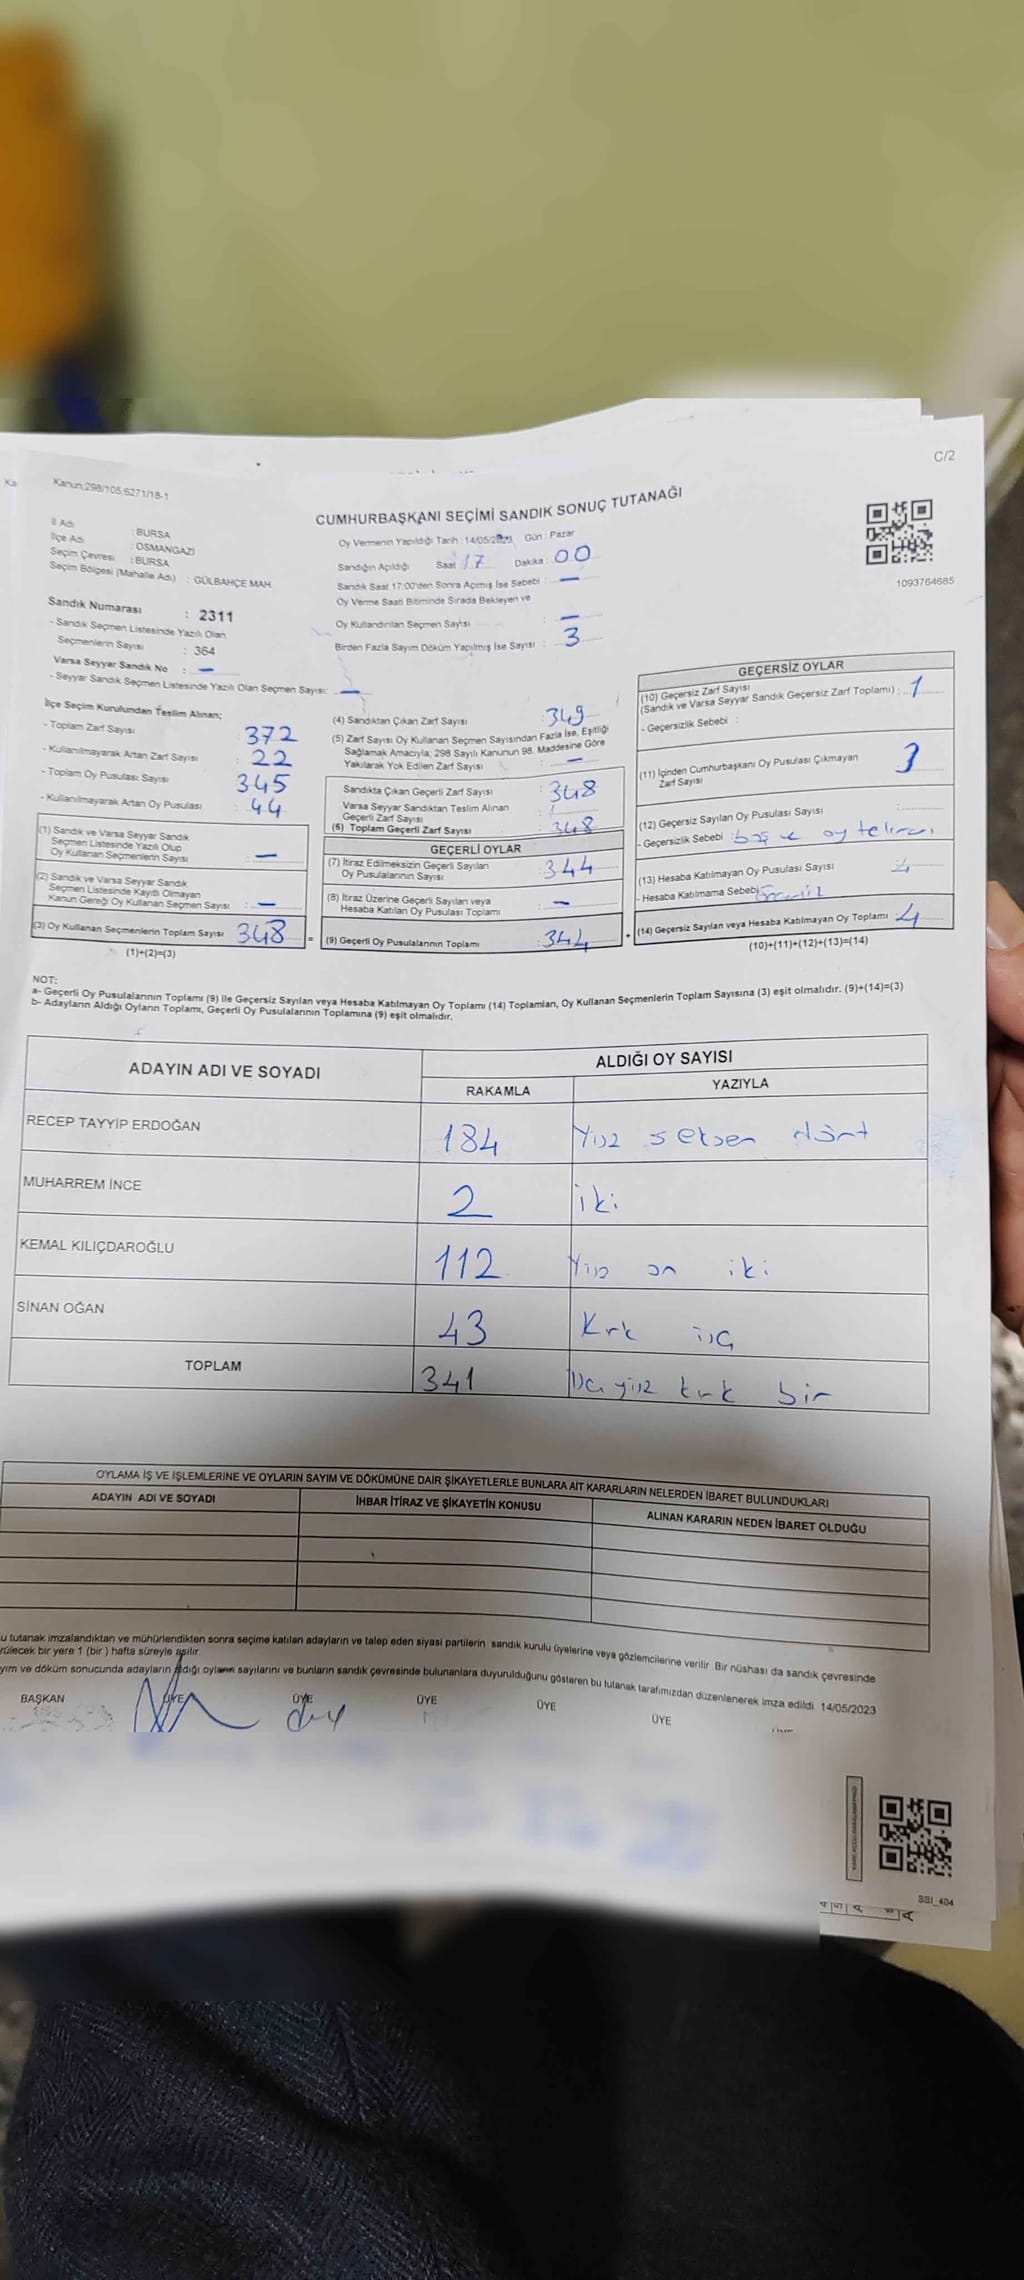 C/2
Kanun;298/105,6271/18-1
CUMHURBAŞKANI SEÇİMİ SANDIK SONUÇ TUTANAĞI
İl Adı : BURSA
İlçe Adı : OSMANGAZİ
Seçim Çevresi : BURSA
Seçim Bölgesi (Mahalle Adı) : GÜLBAHÇE MAH.
Oy Vermenin Yapıldığı Tarih :14/05/2023 Gün : Pazar
Sandığın Açıldığı Saat 17 Dakika : 00
Sandık Saat 17:00'den Sonra Açımış İse Sebebi : —
Oy Verme Saati Bitiminde Sırada Bekleyen ve
Oy Kullandırılan Seçmen Sayısı : —
Birden Fazla Sayım Döküm Yapılmış İse Sayısı : 3
1093764685
Sandık Numarası : 2311
- Sandık Seçmen Listesinde Yazılı Olan
Seçmenlerin Sayısı : 364
Varsa Seyyar Sandık No : —
- Seyyar Sandık Seçmen Listesinde Yazılı Olan Seçmen Sayısı: —
İlçe Seçim Kurulundan Teslim Alınan;
- Toplam Zarf Sayısı : 372
- Kullanılmayarak Artan Zarf Sayısı : 22
- Toplam Oy Pusulası Sayısı : 345
- Kullanılmayarak Artan Oy Pusulası : 44
(1) Sandık ve Varsa Seyyar Sandık
Seçmen Listesinde Yazılı Olup
Oy Kullanan Seçmenlerin Sayısı : —
(2) Sandık ve Varsa Seyyar Sandık
Seçmen Listesinde Kayıtlı Olmayan
Kanun Gereği Oy Kullanan Seçmen Sayısı : —
(3) Oy Kullanan Seçmenlerin Toplam Sayısı 348
(1)+(2)=(3)
(4) Sandıktan Çıkan Zarf Sayısı : 349
(5) Zarf Sayısı Oy Kullanan Seçmen Sayısından Fazla İse, Eşitliği
Sağlamak Amacıyla; 298 Sayılı Kanunun 98. Maddesine Göre
Yakılarak Yok Edilen Zarf Sayısı : —
Sandıkta Çıkan Geçerli Zarf Sayısı : 348
Varsa Seyyar Sandıktan Teslim Alınan
Geçerli Zarf Sayısı
(6) Toplam Geçerli Zarf Sayısı : 348
GEÇERLİ OYLAR
(7) İtiraz Edilmeksizin Geçerli Sayılan
Oy Pusulalarının Sayısı : 344
(8) İtiraz Üzerine Geçerli Sayılan veya
Hesaba Katılan Oy Pusulası Toplamı : —
= (9) Geçerli Oy Pusulalarının Toplamı : 344
GEÇERSİZ OYLAR
(10) Geçersiz Zarf Sayısı
(Sandık ve Varsa Seyyar Sandık Geçersiz Zarf Toplamı) : 1
- Geçersizlik Sebebi :
(11) İçinden Cumhurbaşkanı Oy Pusulası Çıkmayan
Zarf Sayısı 3
(12) Geçersiz Sayılan Oy Pusulası Sayısı :
- Geçersizlik Sebebi : boş ve oy
(13) Hesaba Katılmayan Oy Pusulası Sayısı : 4
- Hesaba Katılmama Sebebi
+ (14) Geçersiz Sayılan veya Hesaba Katılmayan Oy Toplamı 4
(10)+(11)+(12)+(13)=(14)
NOT:
a- Geçerli Oy Pusulalarının Toplamı (9) ile Geçersiz Sayılan veya Hesaba Katılmayan Oy Toplamı (14) Toplamları, Oy Kullanan Seçmenlerin Toplam Sayısına (3) eşit olmalıdır. (9)+(14)=(3)
b- Adayların Aldığı Oyların Toplamı, Geçerli Oy Pusulalarının Toplamına (9) eşit olmalıdır.
ADAYIN ADI VE SOYADI ALDIĞI OY SAYISI
RAKAMLA YAZIYLA
RECEP TAYYİP ERDOĞAN 184 Yüz seksen dört
MUHARREM İNCE 2 iki
KEMAL KILIÇDAROĞLU 112 Yüz on iki
SİNAN OĞAN 43 Kırk üç
TOPLAM 341 Üç yüz kırk bir
OYLAMA İŞ VE İŞLEMLERİNE VE OYLARIN SAYIM VE DÖKÜMÜNE DAİR ŞİKAYETLERLE BUNLARA AİT KARARLARIN NELERDEN İBARET BULUNDUKLARI
ADAYIN ADI VE SOYADI İHBAR İTİRAZ VE ŞİKAYETİN KONUSU ALINAN KARARIN NEDEN İBARET OLDUĞU
u tutanak imzalandıktan ve mühürlendikten sonra seçime katılan adayların ve talep eden siyasi partilerin sandık kurulu üyelerine veya gözlemcilerine verilir. Bir nüshası da sandık çevresinde
rülecek bir yere 1 (bir ) hafta süreyle asılır.
yım ve döküm sonucunda adayların aldığı oyların sayılarını ve bunların sandık çevresinde bulunanlara duyurulduğunu gösteren bu tutanak tarafımızdan düzenlenerek imza edildi. 14/05/2023
BAŞKAN ÜYE ÜYE ÜYE ÜYE ÜYE
SSI_404